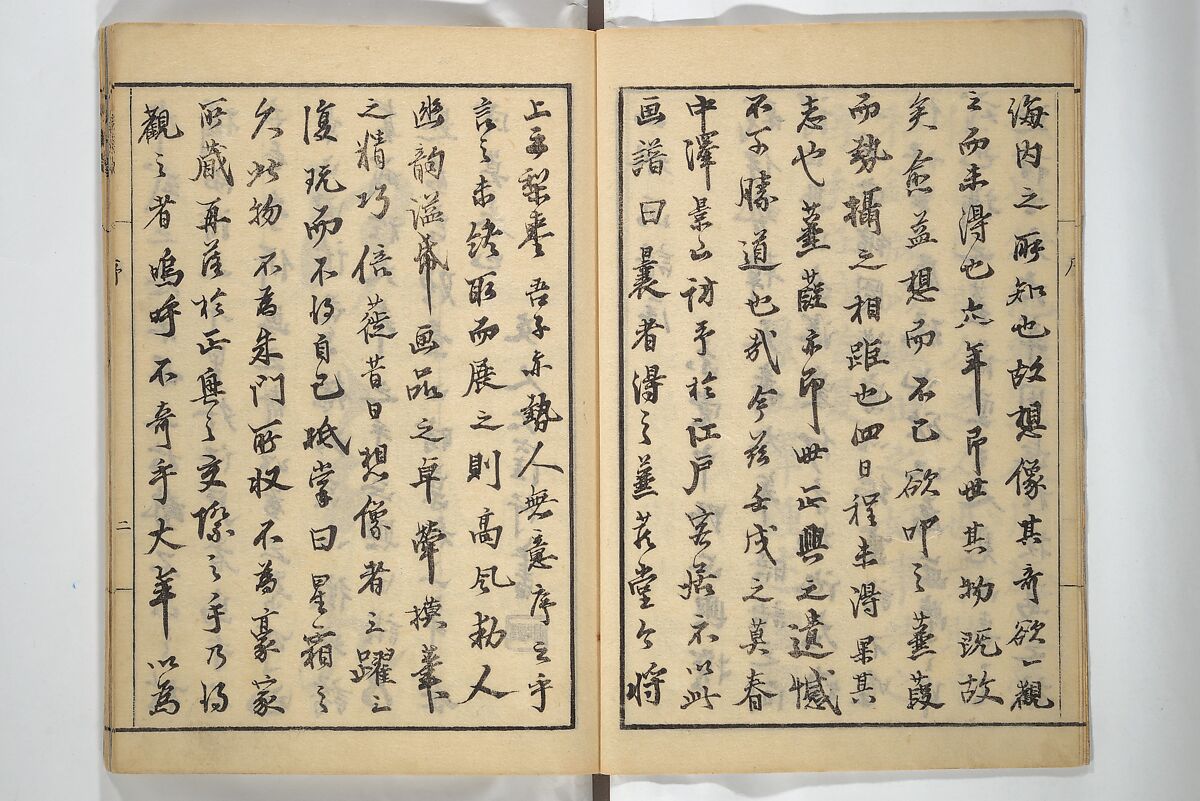 海内之所知也故想像其奇欲一觀
之而未得也六年即世其物既故
矣愈益想而不已欲叩之蒹葭
而勢攝之相距也四日程未得果其
志也蒹葭亦即世正興之遺憾
不可勝道也哉今茲壬戌之莫春
中澤景山訪予於江戶客居不以此
画譜曰曩者得之蒹葭堂今将
上于梨棗吾子亦勢人無意序之乎
言之未終取而展之則高風動人
幽韵溢帋画品之卓犖摸筆
之精巧倍蓰昔日想像者之躍之
復玩而不得自已抵掌曰星霜之
久此物不為朱門所收不為豪家
所蔵再落於正興之交際之手乃得
觀之者嗚呼不奇乎大年以為
序
二